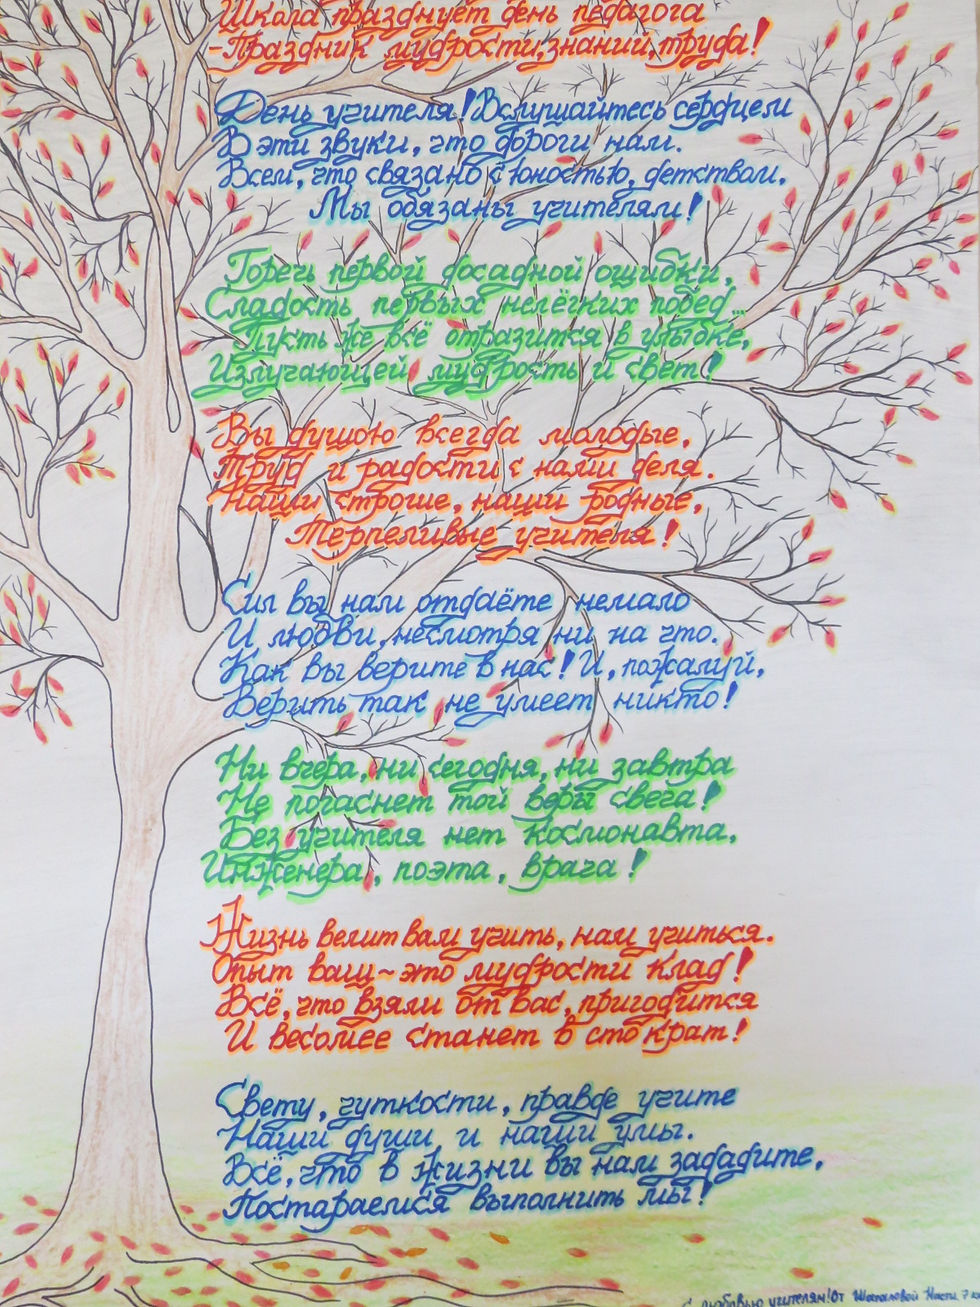 Школа празднует день педагога
-Праздник мудрости, знаний, труда!
День учителя! Вслушайтесь сердцем
В эти звуки, что дороги нам.
Всем, что связано с юностью, детством,
Мы обязаны учителям!
Горечь первой досадной ошибки,
Сладость первых нелёгких побед...
Пусть же всё отразится в улыбке,
Излучающей мудрость и свет!
Вы душою всегда молодые,
Труд и радости с нами деля.
Наши строгие, наши родные,
Терпеливые учителя!
Сил вы нам отдаёте немало
И любви, несмотря ни на что.
Как вы верите в нас! И, пожалуй,
Верить так не умеет никто!
Ни вчера, ни сегодня, ни завтра
Не погаснет той веры свеча!
Без учителя нет космонавта,
Инженера, поэта, врача!
Жизнь велит вам учить, нам учиться.
Опыт ваш - это мудрости клад!
Всё, что взяли от вас, пригодится
И весомее станет в сто крат!
Свету, чуткости, правде учите
Наши души и наши умы.
Всё, что в жизни вы нам зададите,
Постараемся выполнить мы!
С любовью учителям! От Насти, 7